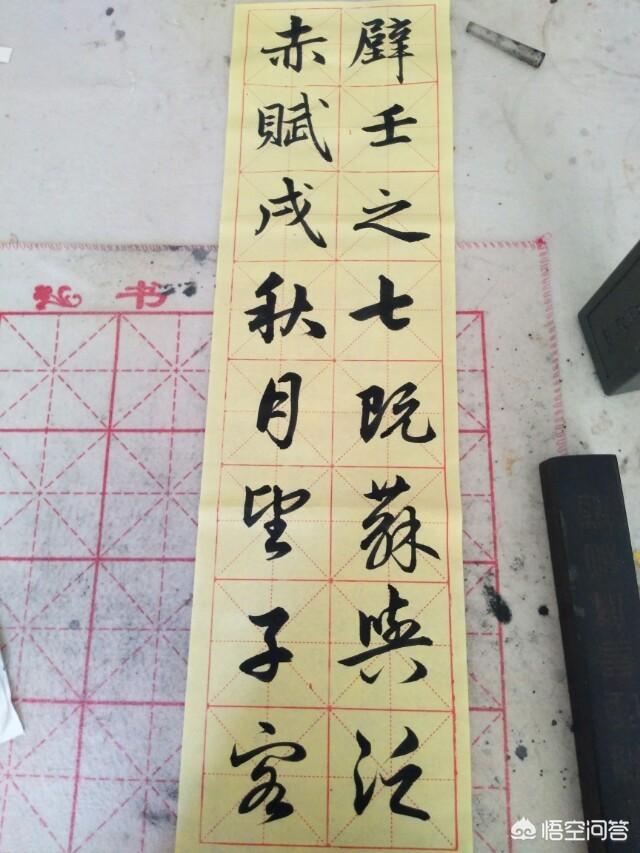 赤壁
賦壬
戌之
秋七
月既
望蘇
子與
客泛
书
悟空问答